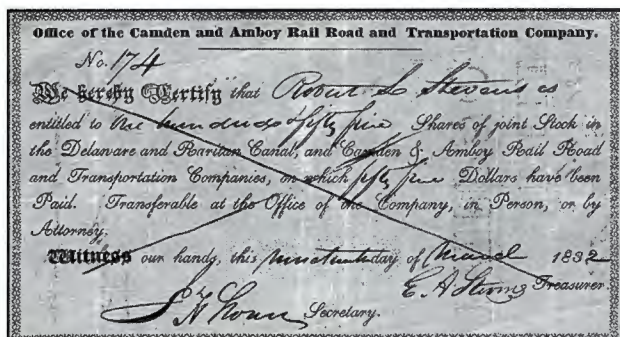 Office of the Camden and Amboy Rail Road and Transportation Company.
No. 174
We hereby Certify that Robert L Stevens is
entitled to One hundred & fifty five Shares of joint Stock in
the Delaware and Raritan Canal, and Camden & Amboy Rail Road
and Transportation Companies, on which fifty five Dollars have been
Paid. Transferable at the Office of the Company, in Person, or by
Attorney.
Witness our hands, this nineteenth day of March 1832
E. A. Stevens Treasurer.
Secretary.